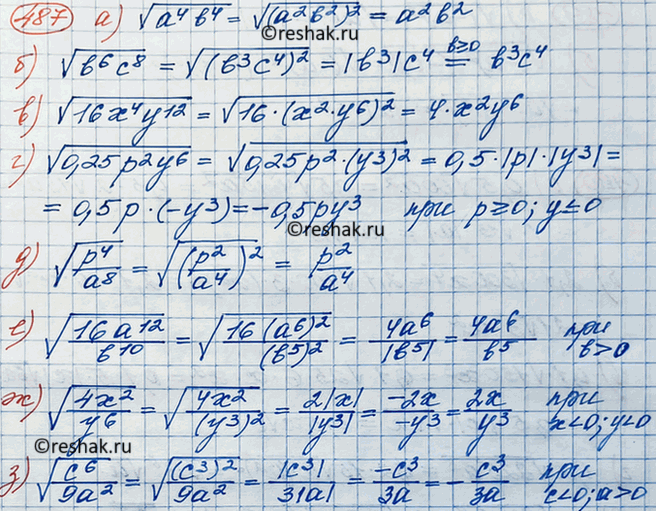 487 а) √(a⁴b⁴) = √((a²b²)²) = a²b²
б) √(b⁶c⁸) = √((b³c⁴)²) = |b³|c⁴ =(b≥0) b³c⁴
в) √(16x⁴y¹²) = √(16·(x²·y⁶)²) = 4·x²y⁶
г) √(0,25p²y⁶) = √(0,25p²·(y³)²) = 0,5·|p|·|y³| =
= 0,5p·(-y³) = -0,5py³ при p≥0; y≤0
©reshak.ru
д) √(p⁴/a⁸) = √((p²/a⁴)²) = p²/a⁴
е) √(16a¹²/b¹⁰) = √(16(a⁶)²/(b⁵)²) = 4a⁶/|b⁵| = 4a⁶/b⁵ при b>0
ж) √(4x²/y⁶) = √(4x²/(y³)²) = 2|x|/|y³| = -2x/-y³ = 2x/y³ при x<0; y<0
©reshak.ru
з) √(c⁶/9a²) = √((c³)²/9a²) = |c³|/3|a| = -c³/3a = - c³/3a при c<0; a>0